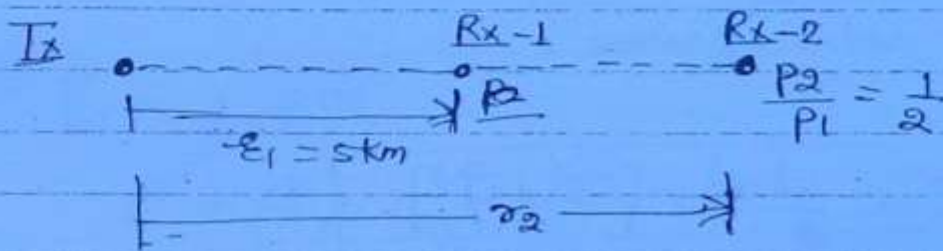 Tx Rx-1 Rx-2
P2 P2/P1 = 1/2
r1 = 5km
r2